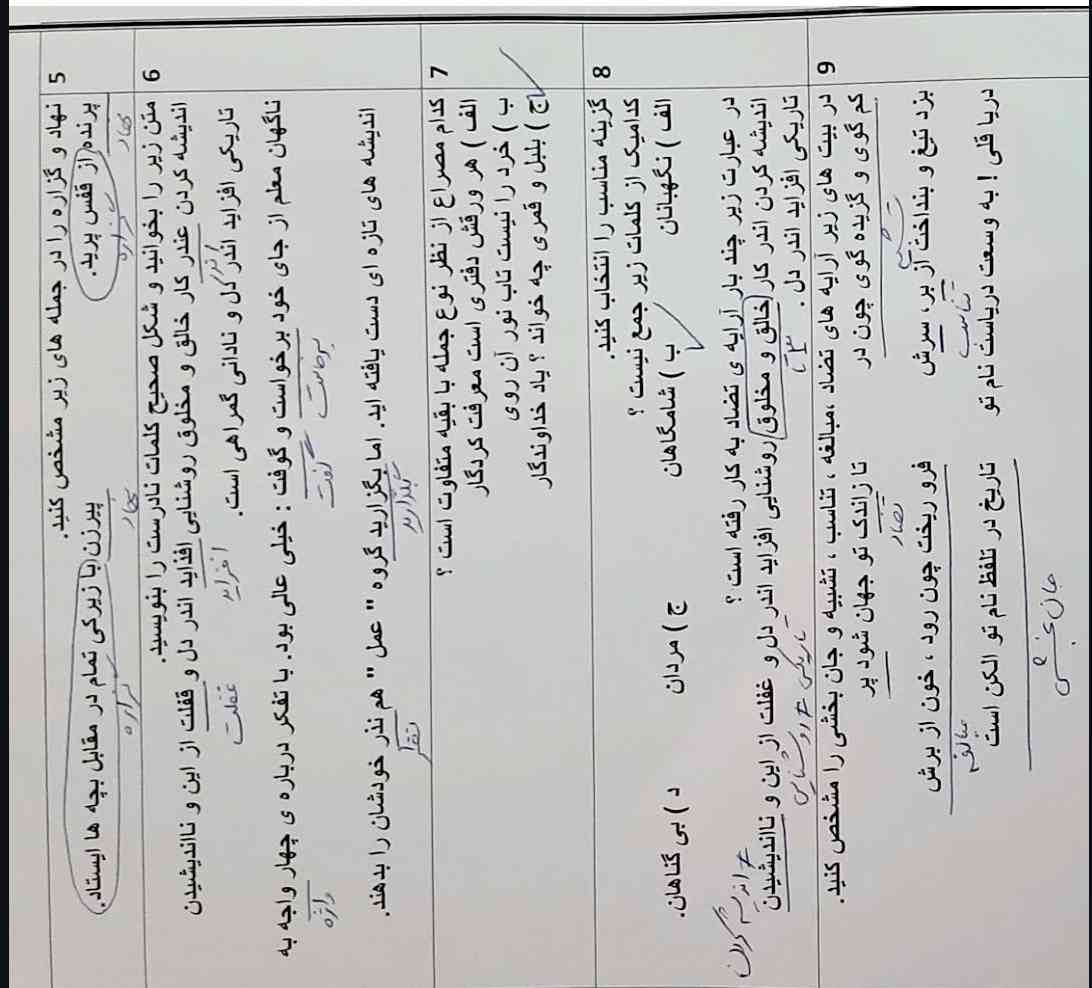 5
نهاد و گزاره را در جمله های زیر مشخص کنید.
پرنده از قفس پرید. پیرزن با زیرکی تمام در مقابل بچه ها ایستاد.
نهاد گزاره نهاد گزاره
6
متن زیر را بخوانید و شکل صحیح کلمات نادرست را بنویسید.
اندیشه کردن عندر کار خالق و مخلوق روشنایی افذاید اندر دل و قفلت از این و نااندیشیدن
اندر افزاید غفلت
تاریکی افزاید اندر دل و نادانی گمراهی است.
ناگهان معلم از جای خود برخواست و گوفت : خیلی عالی بود. با تفکر درباره ی چهار واجه به
برخاست گفت واژه
اندیشه های تازه ای دست یافته اید. اما بگزارید گروه " عمل " هم نذر خودشان را بدهند.
بگذارید نظر
7
کدام مصراع از نظر نوع جمله با بقیه متفاوت است ؟
الف ) هر ورقش دفتری است معرفت کردگار
ب ) خرد را نیست تاب نور آن روی
ج ) بلبل و قمری چه خواند ؟ یاد خداوندگار
8
گزینه مناسب را انتخاب کنید.
کدامیک از کلمات زیر جمع نیست ؟
الف ) نگهبانان ب ) شامگاهان ج ) مردان د ) بی گناهان.
در عبارت زیر چند بار آرایه ی تضاد به کار رفته است ؟
اندیشه کردن اندر کار خالق و مخلوق روشنایی افزاید اندر دل و غفلت از این و نااندیشیدن
تاریکی ≠ روشنایی ≠ اندیشه کردن
تاریکی افزاید اندر دل .
9
در بیت های زیر آرایه های تضاد ،مبالغه ، تناسب ، تشبیه و جان بخشی را مشخص کنید.
کم گوی و گزیده گوی چون در تا زاندک تو جهان شود پر
تشبیه تضاد
بزد تیغ و بنداخت از بر، سرش فرو ریخت چون رود ، خون از برش
تناسب مبالغه
دریا قلی ! به وسعت دریاست نام تو تاریخ در تلفظ نام تو الکن است
جان بخشی